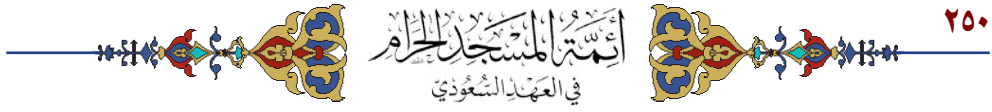 ٢٥٠
أَئِمَّةُ المَسْجِدِ الحَرَامِ
في العَهْدِ السُّعُودِيّ